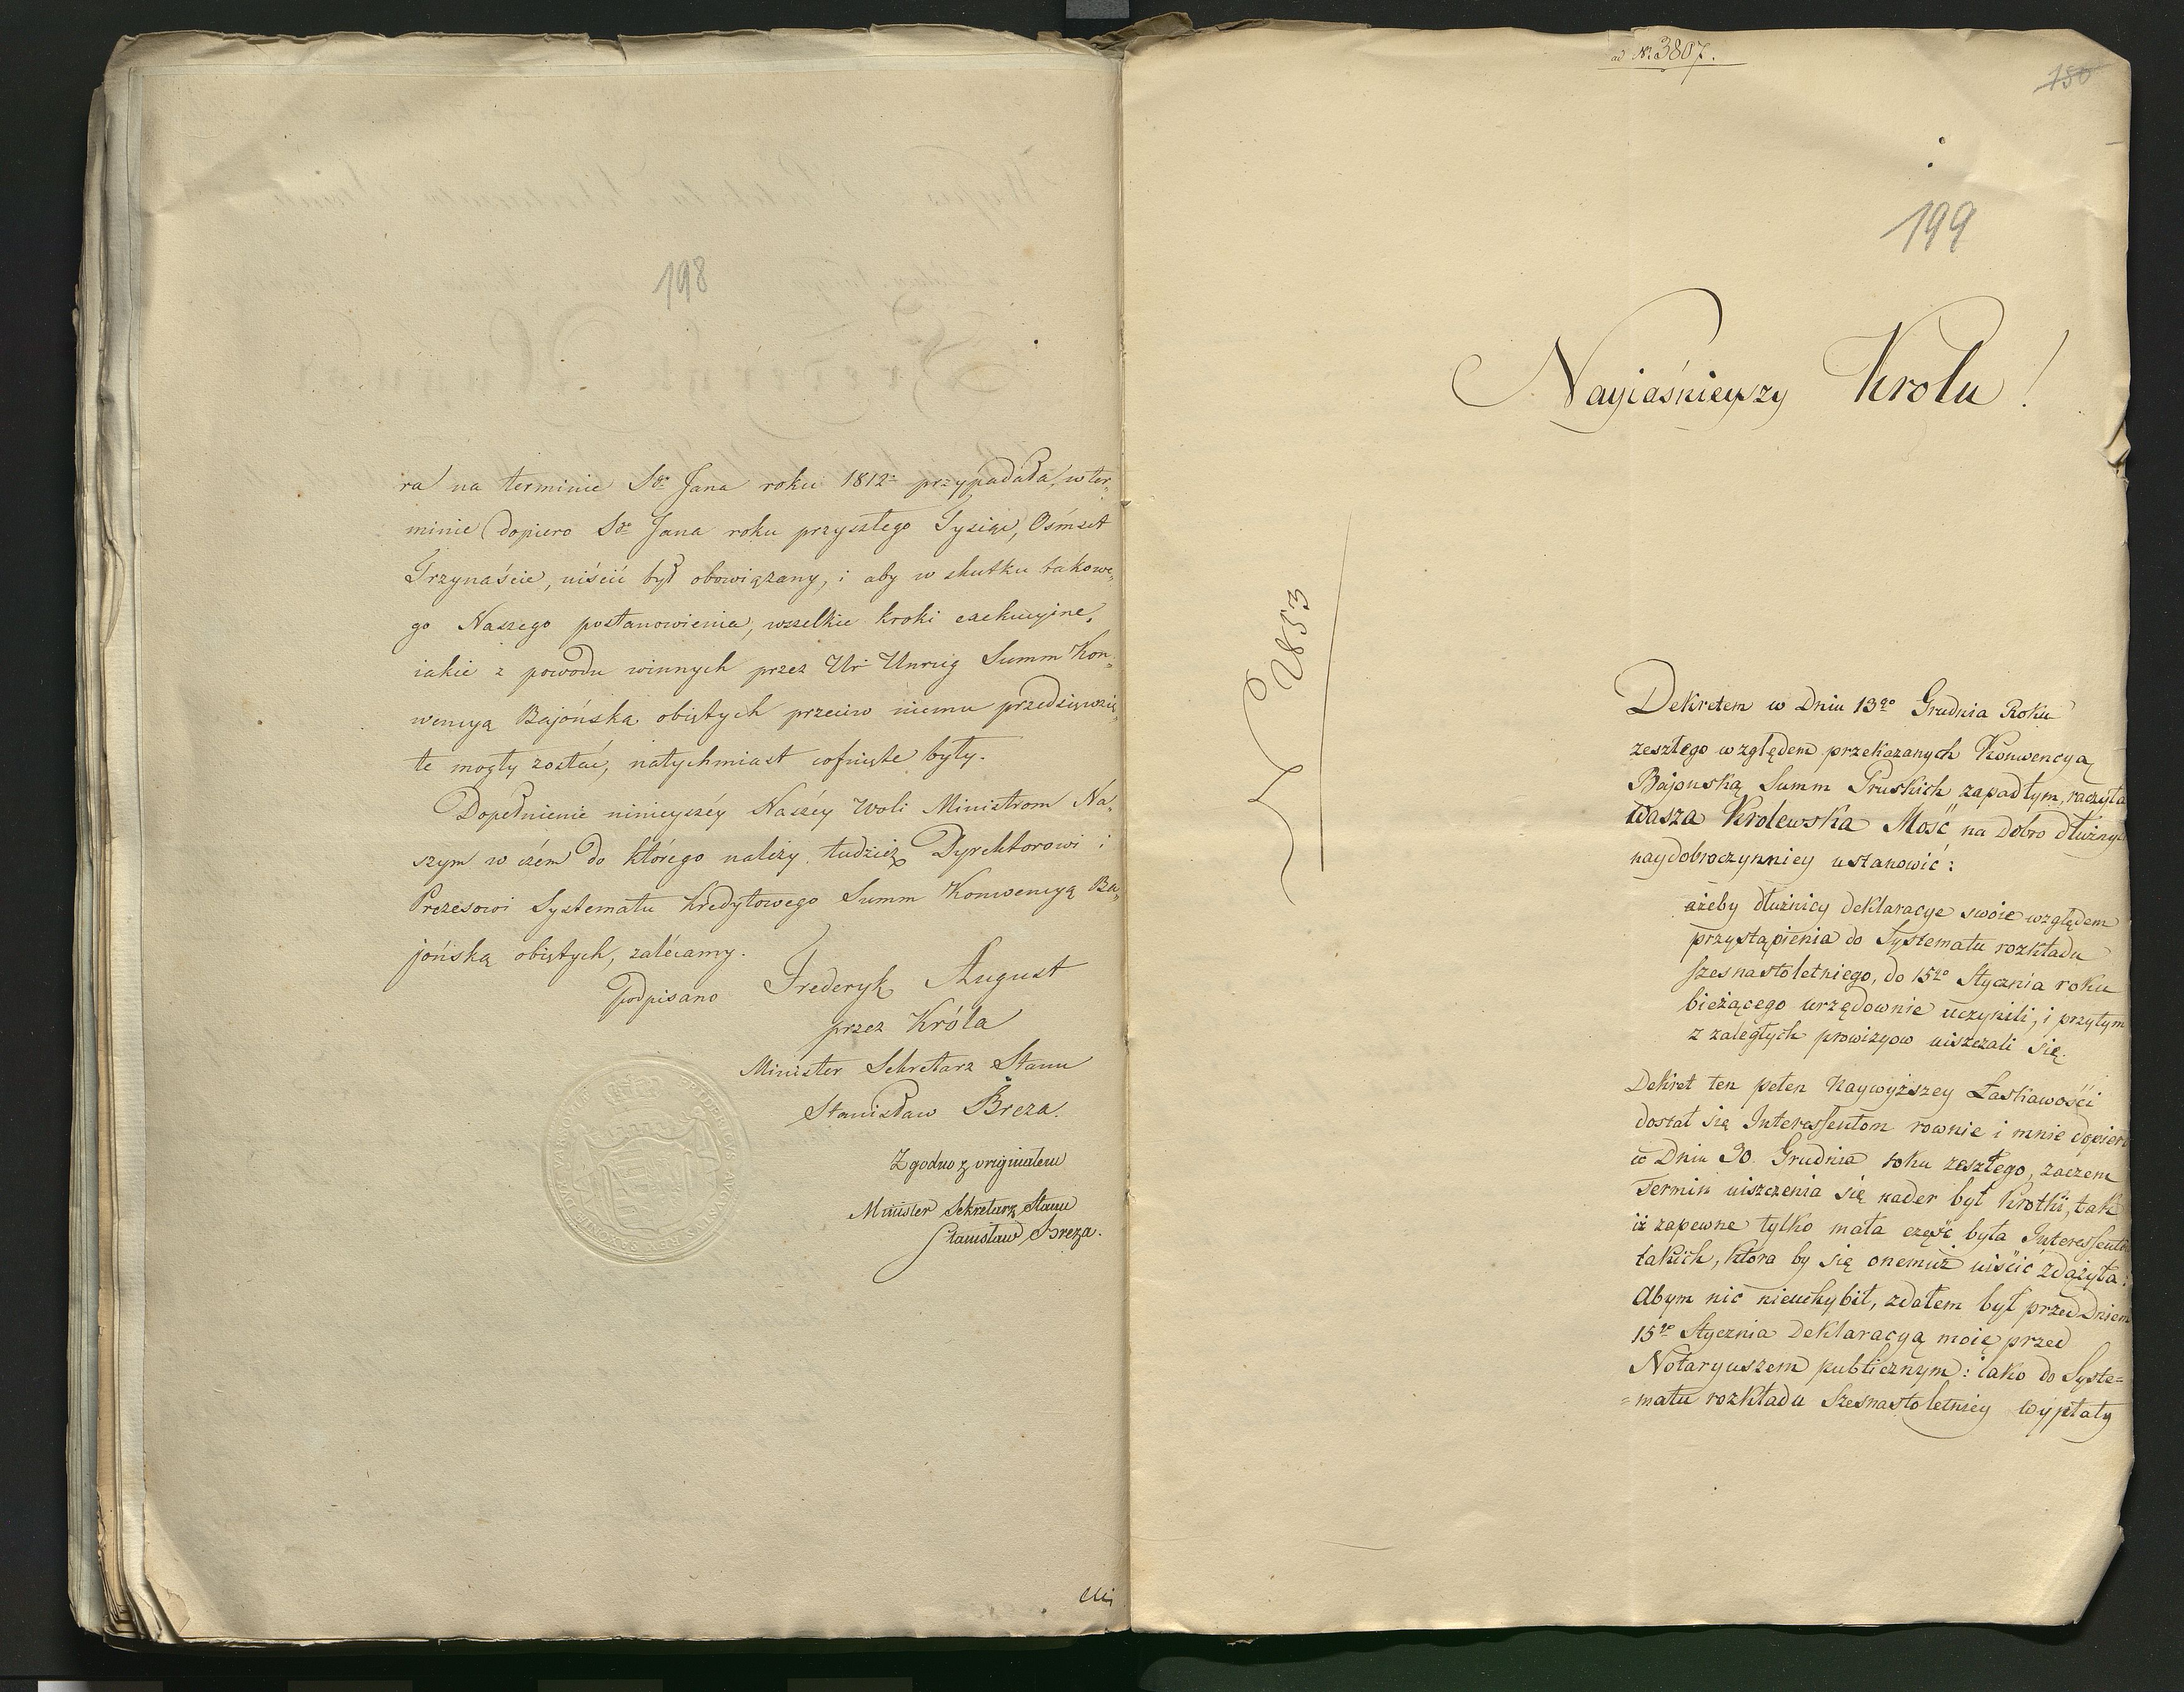 198
ra na terminie Sgo Jana roku 1812o przypadała, w ter„
minie dopiero Sgo Jana roku przyszłego Tysiąc, Ośmset
Trzynaście, uiścić był obowiązany, i aby w skutku takowe„
go Naszego postanowienia, wszelkie kroki exekucyjne,
iakie z powodu winnych przez Ur Unrug Summ Kon„
wencyą Bajońską obiętych przeciw niemu przedsięwzię„
te mogły zostać, natychmiast cofnięte były.
Dopełnienie ninieyszéy Naszéy Woli Ministrom Na„
szym w czém do którego należy tudzież Dyrektorowi i
Prezesowi Systematu Kredytowego Summ Konwencyą Ba„
jońską obiętych, zalécamy.
Podpisano Frederyk August
przez Króla
Minister Sekretarz Stanu
Stanisław Breza.
Zgodno z originałem
Minister Sekretarz Stanu
Stanisław Breza.
ad Nr. 3807.
150
199
Nayiaśnieyszy Krolu!
2853
Dekretem w Dniu 13go Grudnia Roku
zeszłego względem przekazanych Konwencyą
Bajonską Summ Pruskich zapadłym, raczyła
Wasza Krolewska Mość na dobro dłużny
naydobroczynniey ustanowić:
ażeby dłużnicy deklaracye swoie względem
przystąpienia do Systematu rozkładu
szesnastoletniego, do 15go Stycznia roku
bieżącego urzędownie uczynili, i przytym
z zaległych prowizyow uiszczali się.
Dekret ten pełen Naywyższey Łaskawości
dostał się Interessentom rownie i mnie dopiero
w Dniu 30. Grudnia roku zeszłego, zaczem
Termin uiszczenia się nader był Krotki, tak
iż zapewne tylko mała część była Interessento
takich, ktora by się onemuż uiścić zdążyła:
Abym nic nieuchybił, zdałem był przed Dniem
15go Stycznia Deklaracyą moię przed
Notaryuszem publicznym: iako do Syste=
=matu rozkładu Szesnastoletniey wypłaty